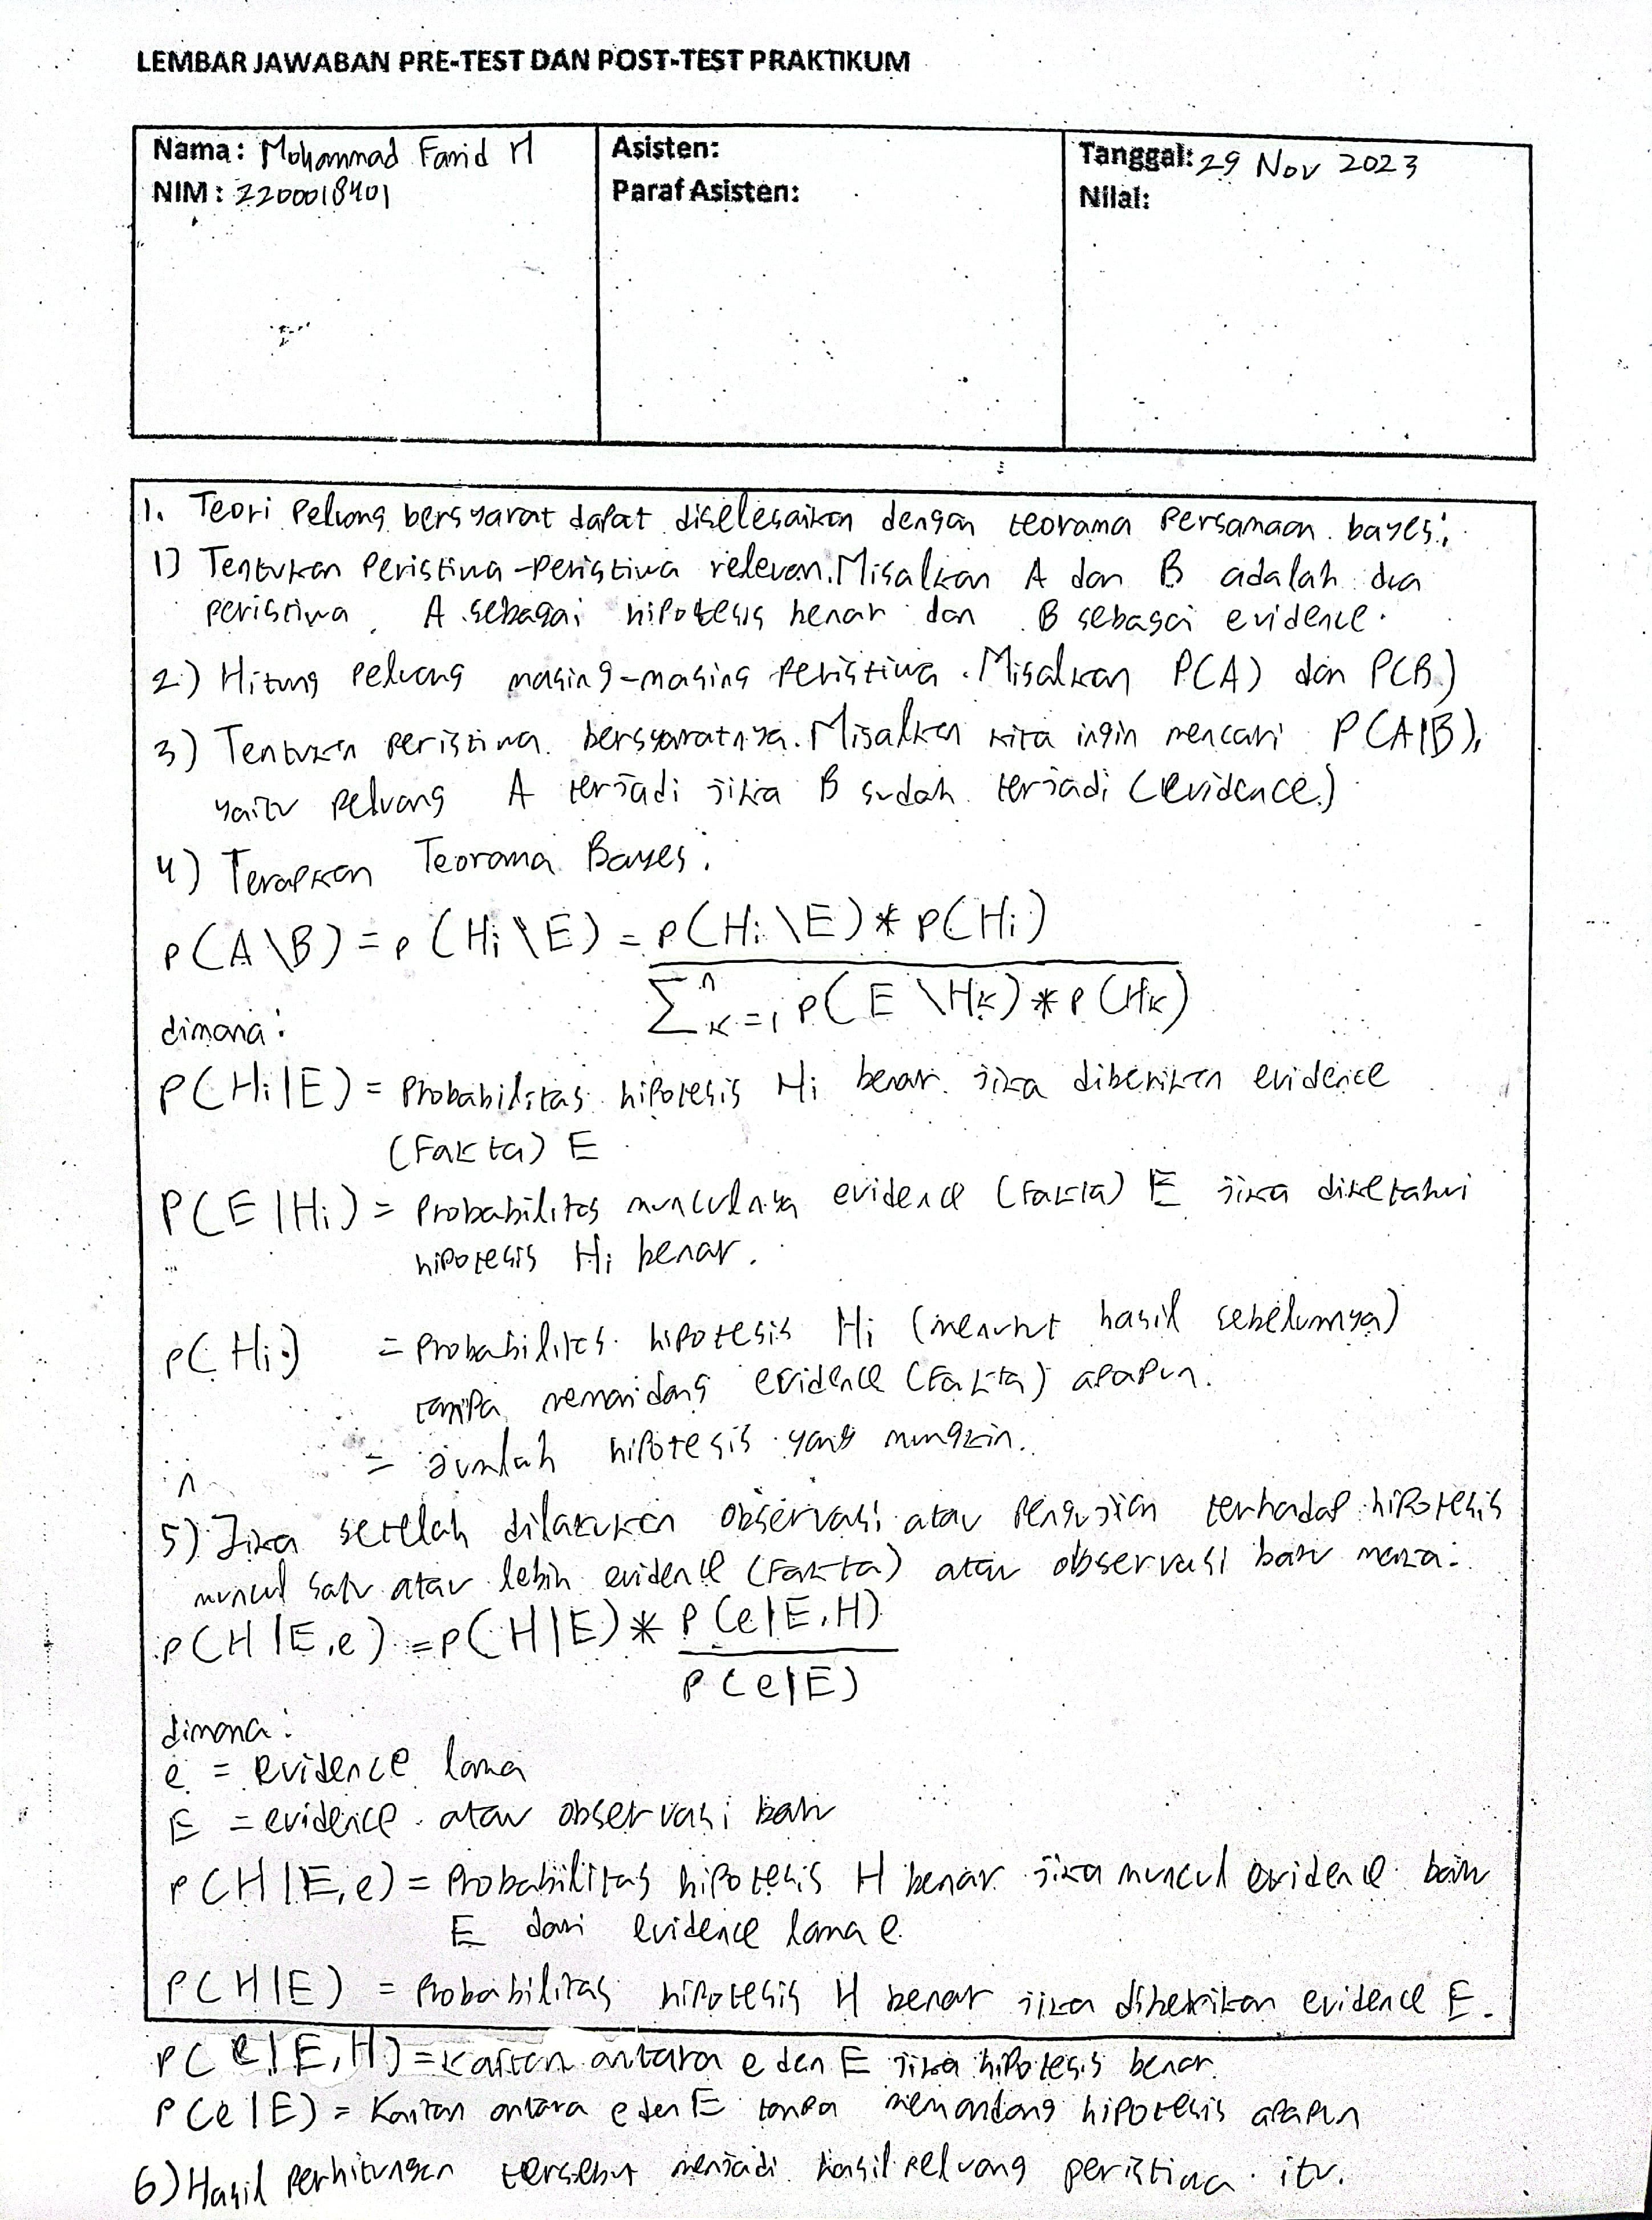 LEMBAR JAWABAN PRE-TEST DAN POST-TEST PRAKTIKUM
Nama: Mohammad Farid M
NIM: 2200018401
Asisten:
Paraf Asisten:
Tanggal: 29 Nov 2023
Nilai:
1. Teori Peluang bersyarat dapat diselesaikan dengan teorama Persamaan bayes:
1) Tentukan Peristiwa-peristiwa relevan. Misalkan A dan B adalah dua
peristiwa, A sebagai hipotesis benar dan B sebagai evidence.
2) Hitung Peluang masing-masing Peristiwa. Misalkan P(A) dan P(B)
3) Tentukan peristiwa bersyaratnya. Misalkan kita ingin mencari P(A|B),
yaitu Peluang A terjadi jika B sudah terjadi (evidence)
4) Terapkan Teorama Bayes:
P(A\B) = P(Hi\E) = P(Hi\E) * P(Hi)
∑ⁿK=1 P(E\HK) * P(HK)
dimana:
P(Hi|E) = Probabilitas hipotesis Hi benar jika diberikan evidence
(Fakta) E
P(E|Hi) = Probabilitas munculnya evidence (Fakta) E jika diketahui
hipotesis Hi benar.
P(Hi) = Probabilitas hipotesis Hi (menurut hasil sebelumnya)
tanpa memandang evidence (Fakta) apapun.
n = Jumlah hipotesis yang mungkin.
5) Jika setelah dilakukan observasi atau Pengujian terhadap hipotesis
muncul satu atau lebih evidence (Fakta) atau observasi baru maka:
P(H|E,e) = P(H|E) * P(e|E,H)
P(e|E)
dimana:
e = evidence lama
E = evidence atau observasi baru
P(H|E,e) = Probabilitas hipotesis H benar jika muncul evidence baru
E dari evidence lama e
P(H|E) = Probabilitas hipotesis H benar jika diberikan evidence E.
P(e|E,H) = kaitan antara e dan E jika hipotesis benar.
P(e|E) = Kaitan antara e dan E tanpa memandang hipotesis apapun
6) Hasil Perhitungan tersebut menjadi hasil peluang peristiwa itu.